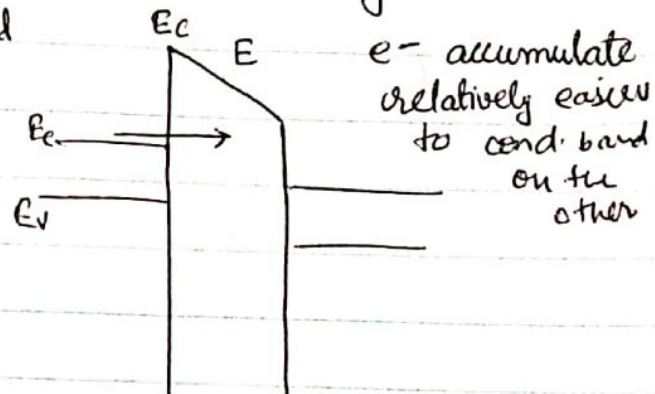 d
Ec
E
e- accumulate
relatively easier
to cond. band
on the
other
Ec
Ev